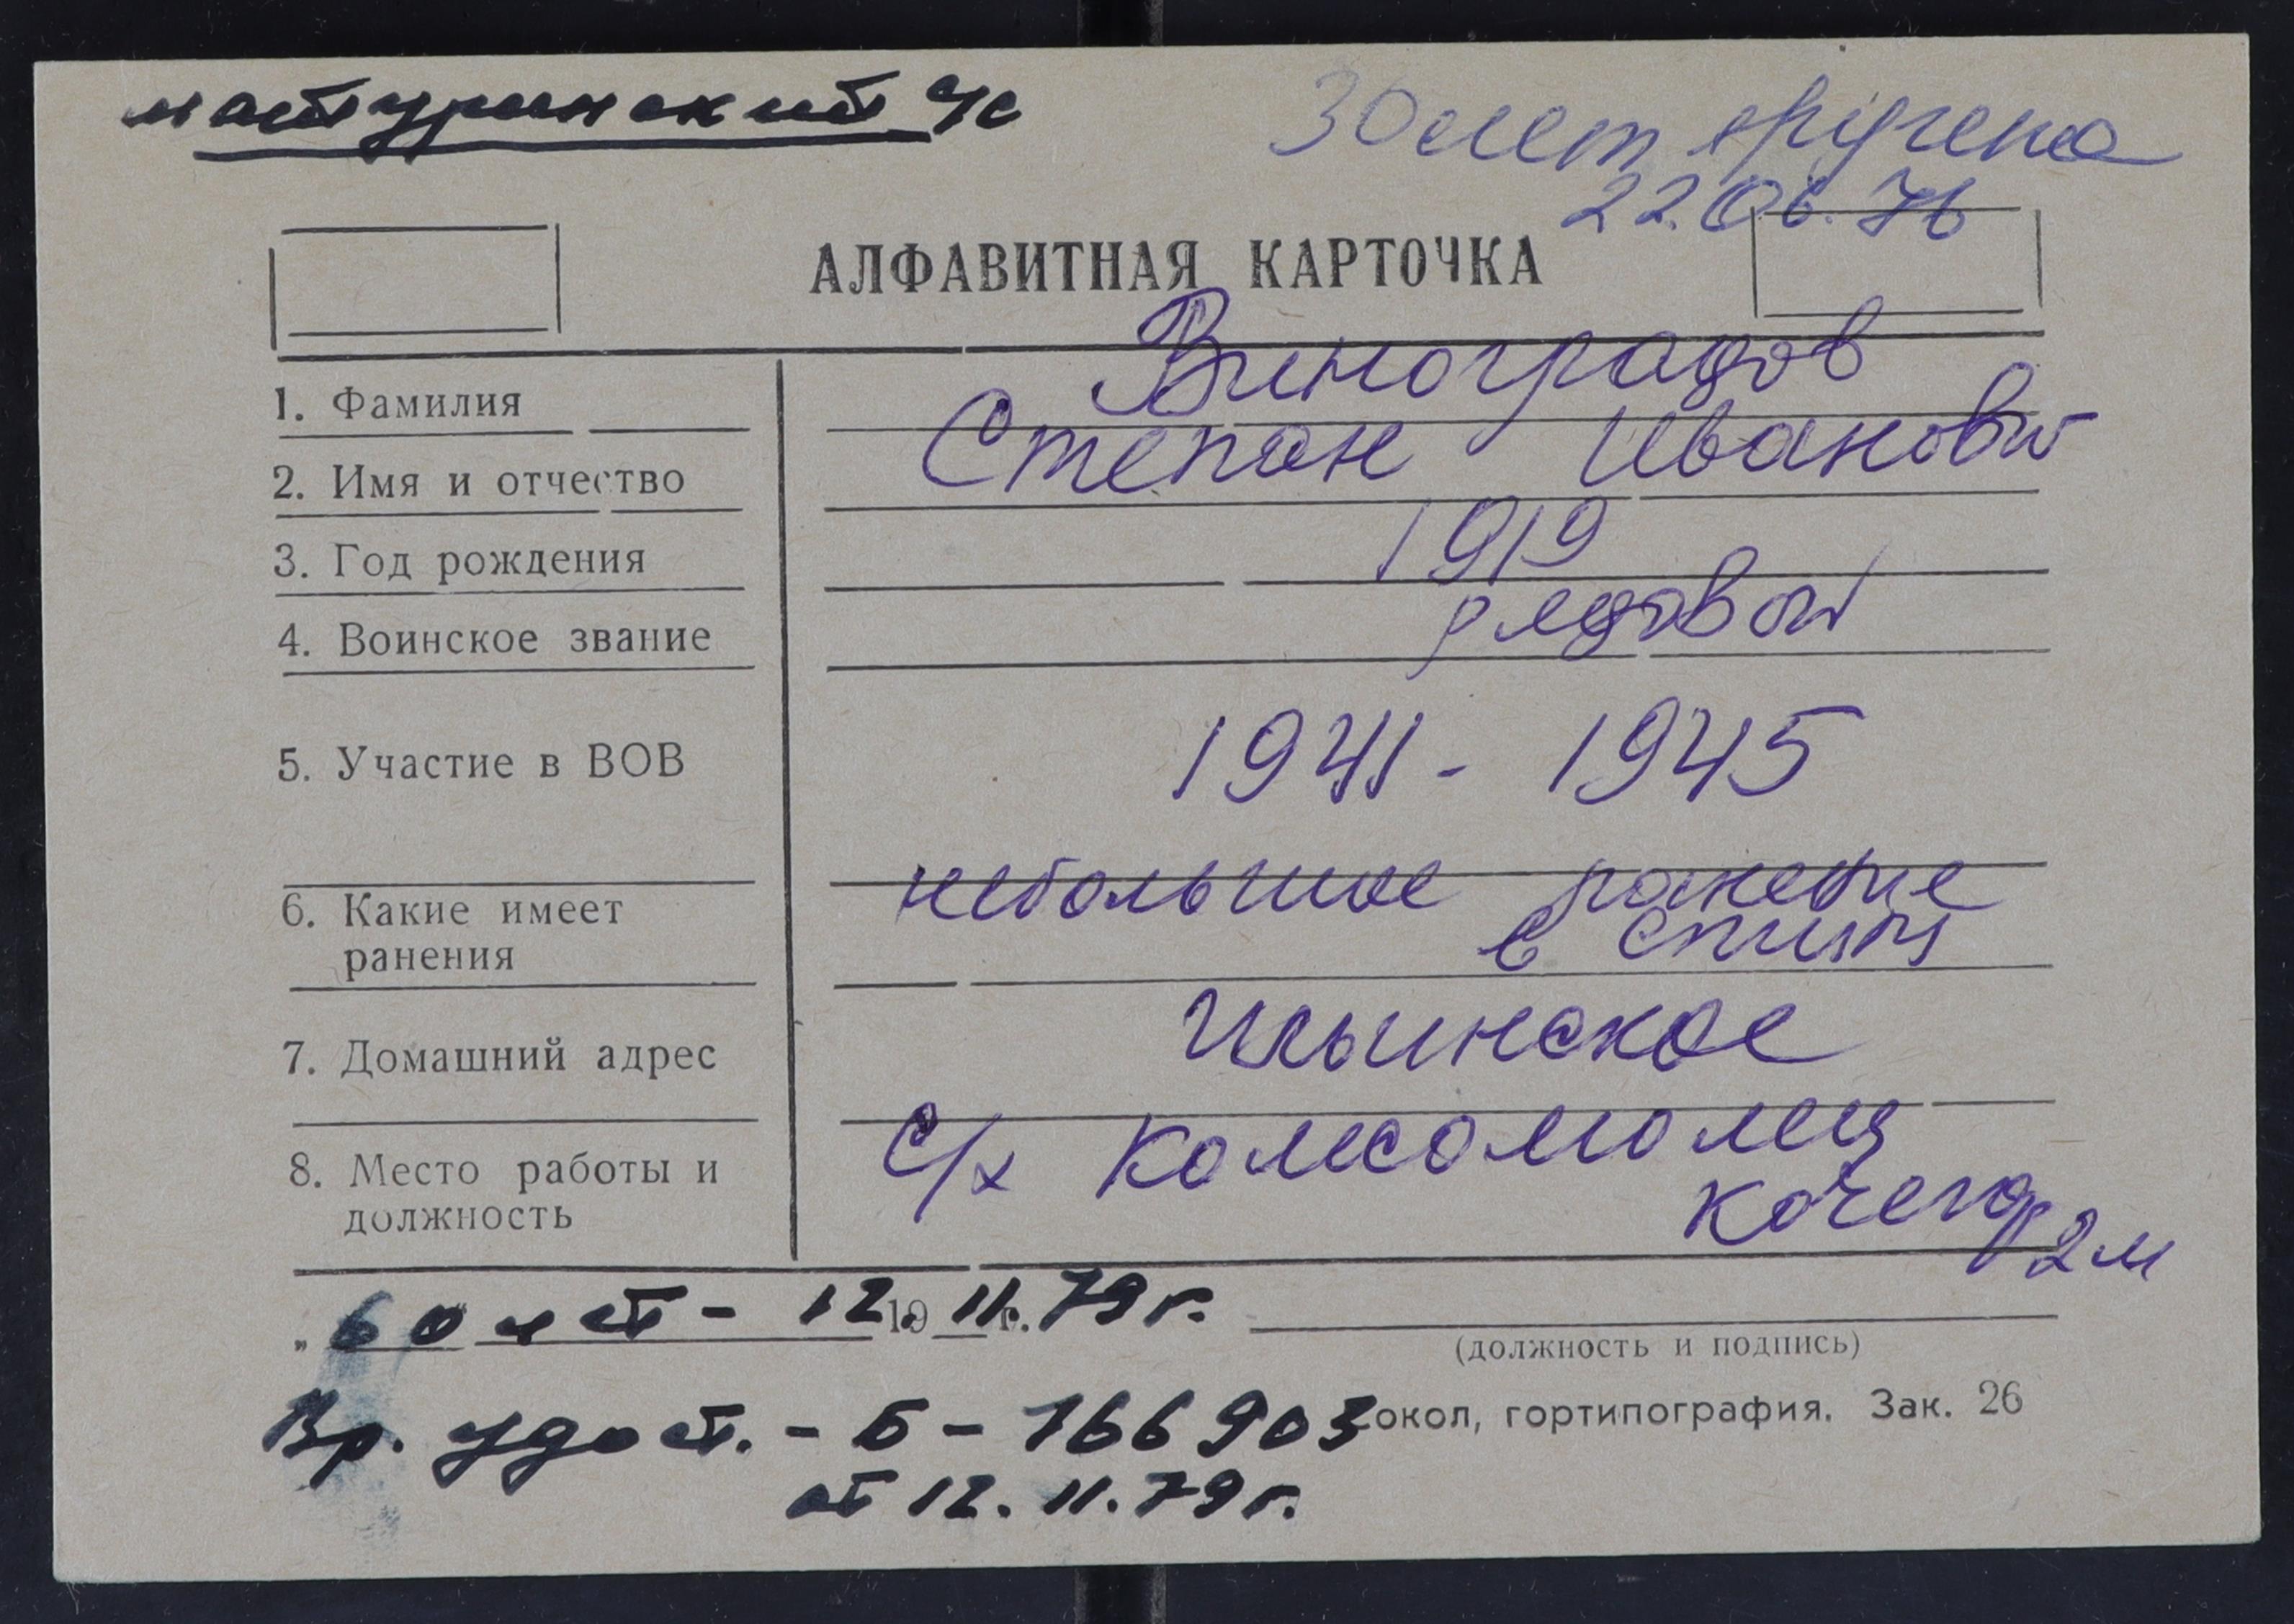 мотуринский ч/с
30 лет вручена
22.06.76
АЛФАВИТНАЯ КАРТОЧКА
1. Фамилия Виноградов
2. Имя и отчество Степан Иванович
3. Год рождения 1919
4. Воинское звание рядовой
5. Участие в ВОВ 1941 - 1945
6. Какие имеет небольшое ранение
ранения в спину
7. Домашний адрес Ильинское
8. Место работы и с/х Комсомолец
должность кочегар 2 м
„ 60 лет - 12. 19 11. г. 79 г.
(должность и подпись)
Вр. удост. - Б - 766903 Сокол, гортипография. Зак. 26
от 12. 11. 79 г.